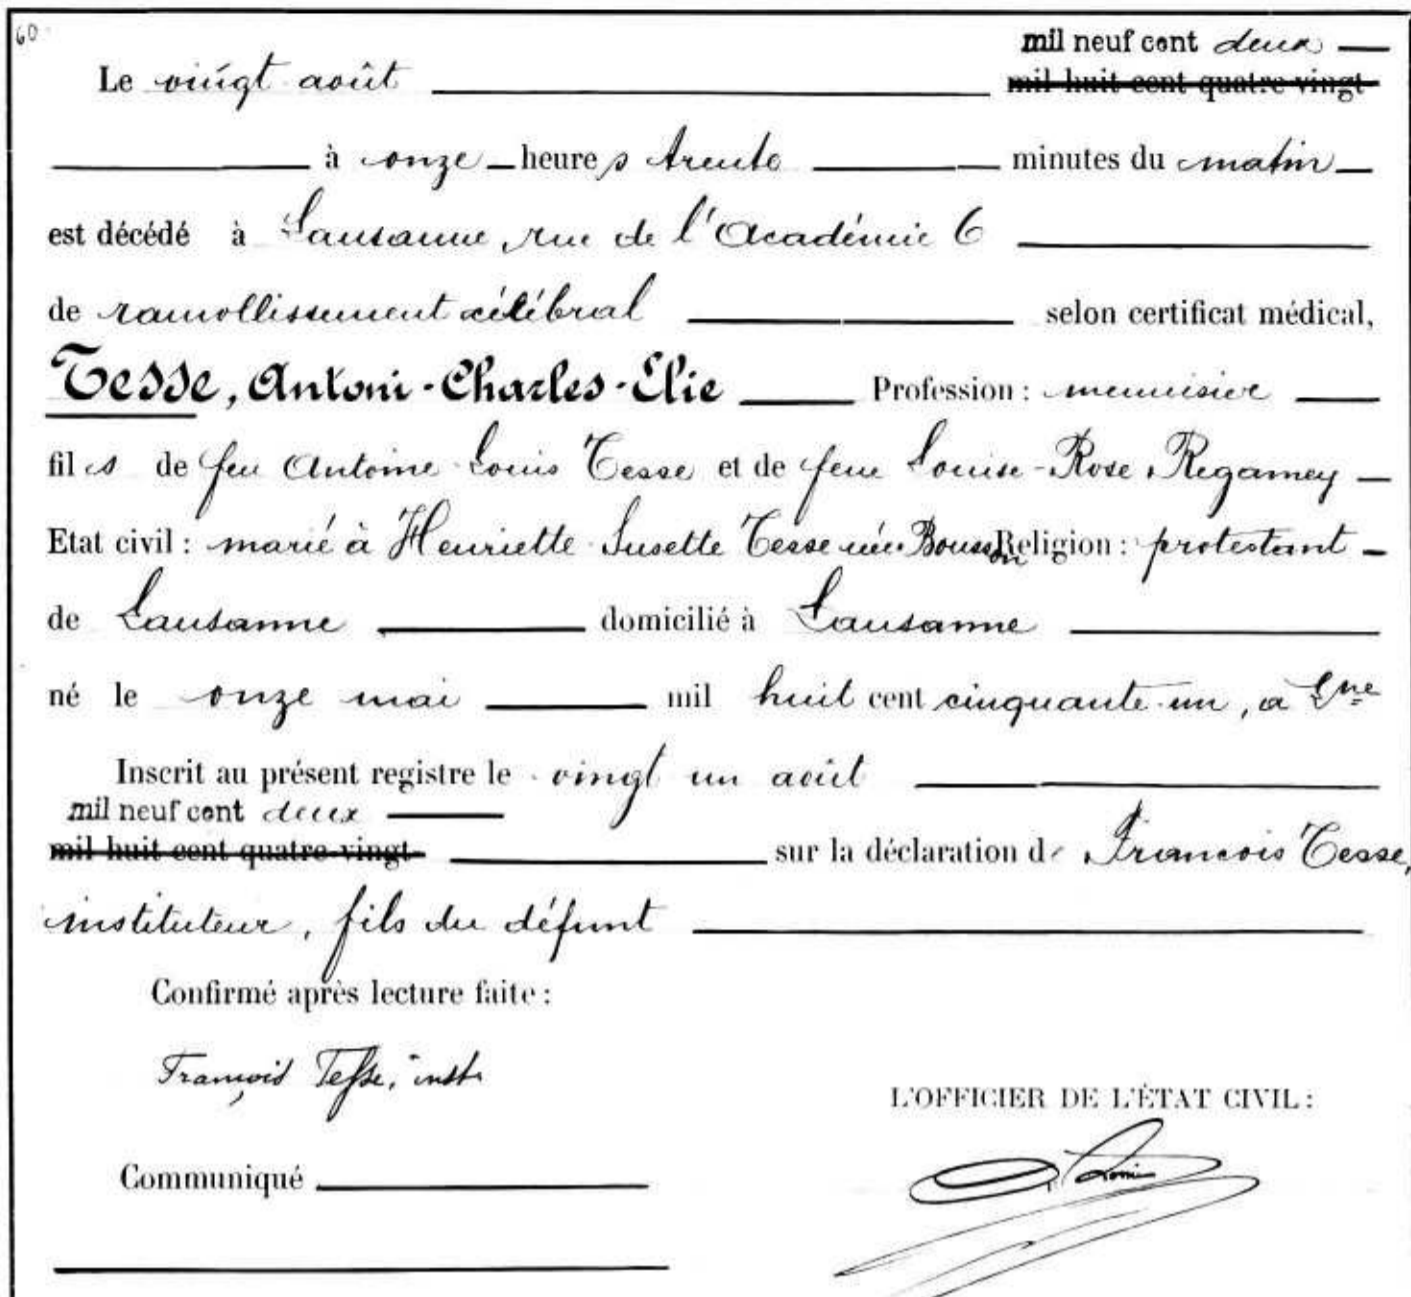 60
mil neuf cent deux
Le vingt août mil huit cent quatre-vingt
à onze heures trente minutes du matin
est décédé à Lausanne, rue de l'Académie 6
de ramollissement célébral selon certificat médical,
Tesse, Antoni-Charles-Elie Profession : menuisier
fils de feu Antoine-Louis Tesse et de feue Louise-Rose Regamey
Etat civil : marié à Henriette-Susette Tesse née Bousson Religion : protestant
de Lausanne domicilié à Lausanne
né le onze mai mil huit cent cinquante-un, a Lne
Inscrit au présent registre le vingt un août
mil neuf cent deux
mil huit cent quatre-vingt sur la déclaration de Francois Tesse,
instituteur, fils du défunt
Confirmé après lecture faite :
François Tesse, inst.
L'OFFICIER DE L'ÉTAT CIVIL :
Communiqué